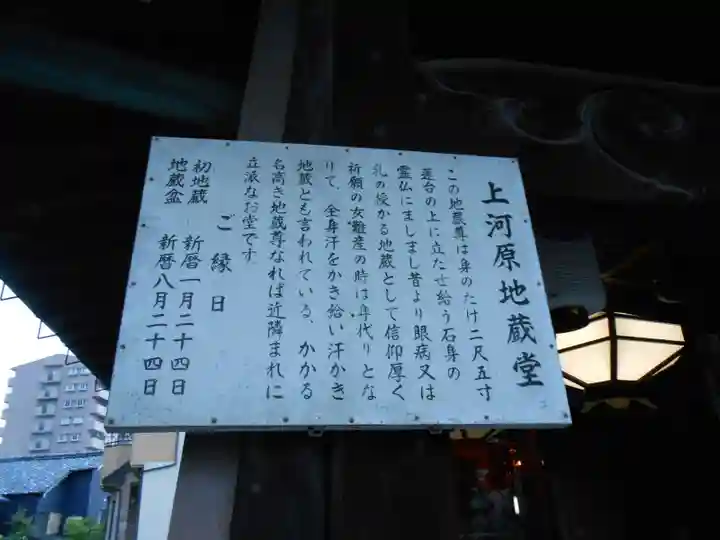 上河原地蔵堂
この地蔵尊は身のたけ二尺五寸
蓮台の上に立たせ給う石身の
霊仏にましまし昔より眼病又は
乳の授かる地蔵として信仰厚く
祈願の女難産の時は身代りとな
りて、全身汗をかき給い汗かき
地蔵とも言われている、かかる
名高き地蔵尊なれば近隣まれに
立派なお堂です
ご縁日
初地蔵 新暦一月二十四日
地蔵盆 新暦八月二十四日